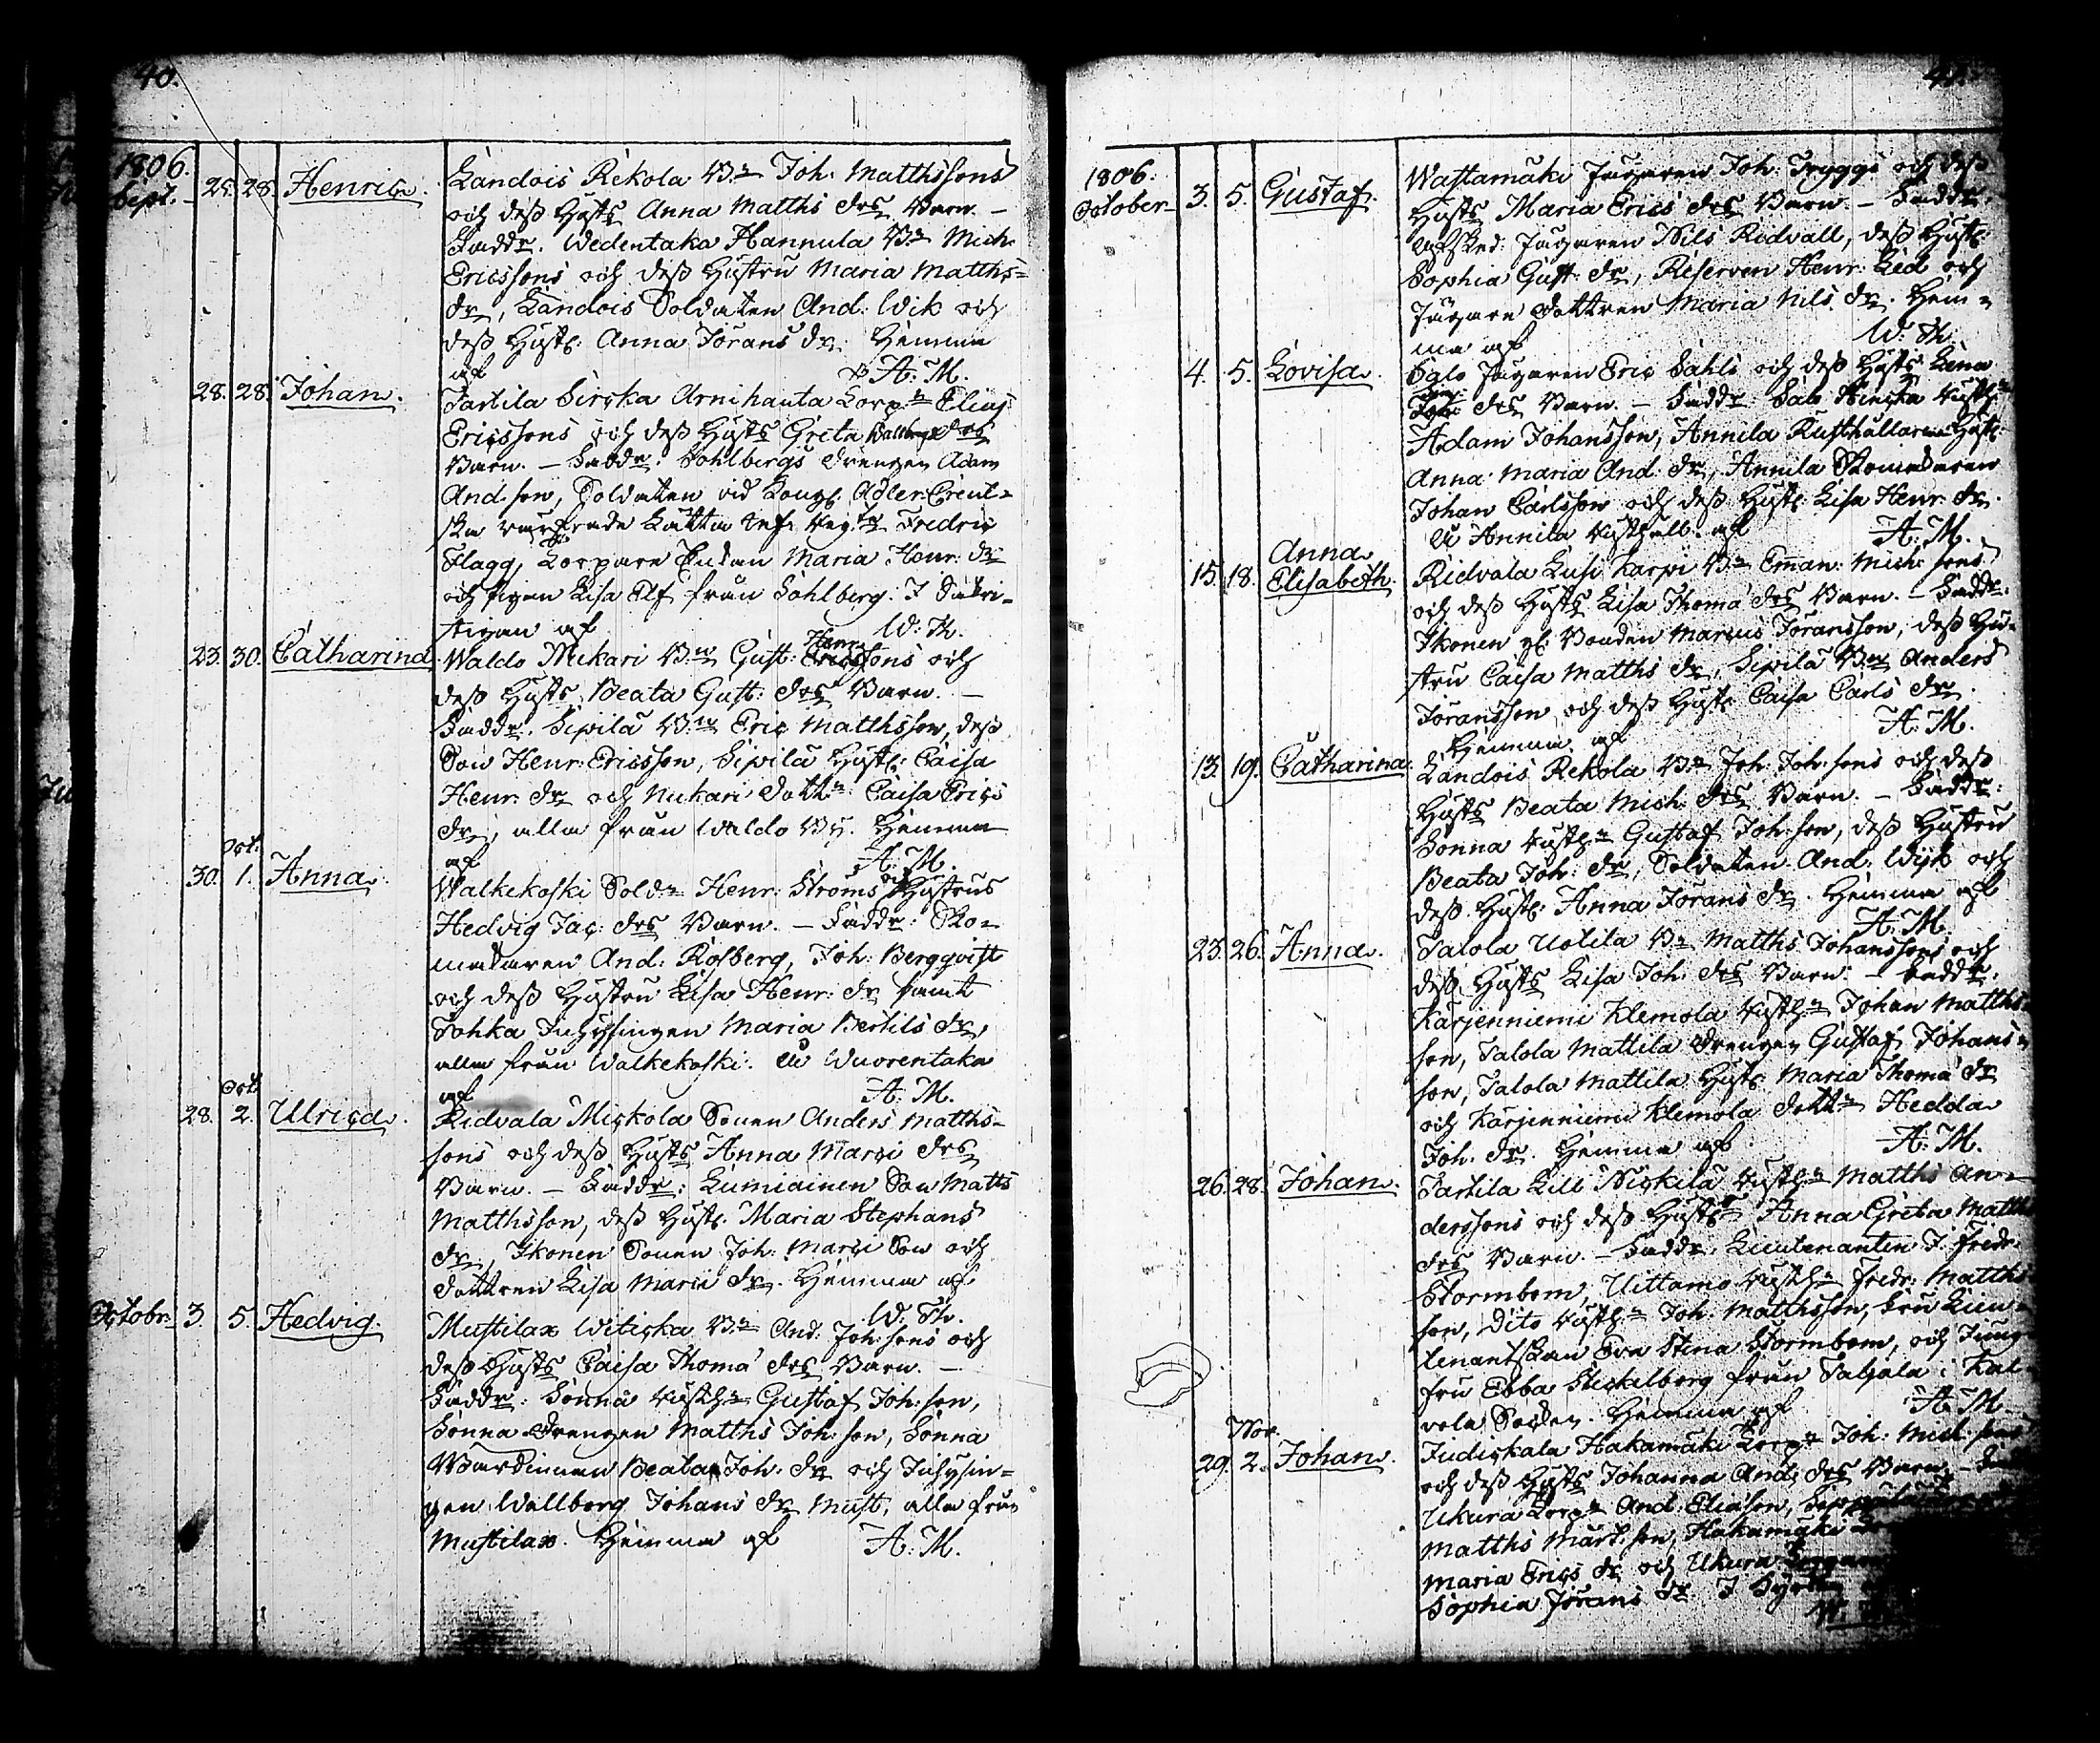 40.
1806.
Sept. 25. 28. Henric. Landois Rekola B:n Joh: Matthssons
och dess Hustrs Anna Matths drs Barn. –
Faddr. Wedentaka Hannula B:n Mich:
Ericssons och dess Hustru Maria Matths=
dr, Landois Soldaten And: Wik och
dess Hust: Anna Jörans dr. Hemma
af A: M.
28. 28. Johan. Tartila Sircka Arnihauta Torp:n Elias
Ericssons och dess Hustrs Greta drs
Barn. – Faddr. Sohlbergs Drengen Adam
And.son, Soldaten vid Kongl. Adler Creut=
ska Fredric
Flagg, Torpare Enkan Maria Henr: dr
och Pigan Lisa Elf från Sohlberg. I Sakri=
stigan af W: Th.
23. 30. Catharina. Waldo Nukari B:n Gust: Henr:sons och
dess Hustrs Beata Gust: drs Barn. –
Faddr. Sipilä B:n Eric Matthsson, dess
Son Henr: Ericsson, Sipilä Hust: Caisa
Henr: dr och Nukari dott:n Caisa Erics
dr, alla från Waldo By. Hemma
af A: M.
Oct.
30. 1. Anna. Walkekoski Sold:n Henr: Ströms och Hustrus
Hedvig Jac: drs Barn. – Faddr: Sko=
makaren And: Rosberg, Joh: Bergqvist
och dess Hustru Lisa Henr: dr samt
Tohka Inhysingen Maria Bertils dr,
alla från Walkekoski. A Wuorentaka
af A: M.
Oct.
28. 2. Ulrica. Ridvala Mickola Sonen Anders Matths=
sons och dess Hustrs Anna Marci drs
Barn. – Faddr: Lumiainen Son Matts
Matthsson, dess Hust: Maria Stephans
dr, Ikonen Sonen Joh: Marci Son och
dottren Lisa Marci dr. Hemma af
W: Th.
Octobr: 3. 5. Hedvig. Mustilax Witicka B:n And: Joh:sons och
dess Hustrs Caisa Thomæ drs Barn. –
Faddr: Sonna Rusth:n Gustaf Joh:son,
Sonna Drengen Matths Joh:son, Sonna
Wärdinnan Beata Joh: dr och Inhysin=
gen Wallborg Johans dr Must, alla från
Mustilax. Hemma af A: M.
41.
1806.
October 3. 5. Gustaf. Wastamäki Jägaren Joh: Tryggs och dess
Hustrs Maria Erics drs Barn. – Faddr:
Afsked: Jägaren Nils Ridvall, dess Hust:
Sophia Gust: dr, Reserven Henr: Led och
Jägare Dottren Maria Nils dr. Hem=
ma af W: Th.
4. 5. Lovisa. Salo Jägaren Eric Sahls och dess Hustrs Lena
drs Barn. – Faddr: Salo Hincka Rusth:n
Adam Johansson, Annila Rusthållaren Hust:
Anna Maria And: dr, Annila Skomakaren
Johan Carlsson och dess Hust: Lisa Henr: dr.
A Annila Rusthåll af A: M.
15. 18. Anna
Elisabeth. Ridvala Lusi Karpi B:n Eman: Mich:sons
och dess Hustrs Lisa Thomæ drs Barn. – Faddr:
Ikonen gl. Bonden Marcus Joransson, dess Hu=
stru Caisa Matths dr, Sipilä B:n Anders
Joransson och dess Hust: Caisa Carls dr.
Hemma af A: M.
13. 19. Catharina. Landois Rekola B:n Joh: Joh:sons och dess
Hustrs Beata Mich: drs Barn. – Faddr:
Sonna Rusth:n Gustaf Joh:son, dess Hustru
Beata Joh: dr, Soldaten And: Wijk och
dess Hust: Anna Jörans dr. Hemma af
A: M.
23. 26. Anna. Talola Uotila B:n Matths Johanssons och
dess Hustrs Lisa Joh: drs Barn. – Faddr:
Karjenniemi Klemola Rusth:n Johan Matths=
son, Talola Mattila Drengen Gustaf Johans=
son, Talola Mattila Hust: Maria Thomæ dr
och Karjenniemi Klemola dott:n Hedda
Joh. dr. Hemma af A: M.
26. 28. Johan. Tartila Lill Nickilä Rusth:n Matths An=
derssons och dess Hustrs Anna Greta Matths
drs Barn. – Faddr. Lieutenanten J. Fredr:
Stormbom, Uittamo Rusth:n Fredr: Matths
son, Dito Rusth:n Joh: Matthsson, Fru Lieu=
tenantskan Eva Stina Stormbom, och Jung=
fru Ebba Stickelborg från Saltjala i Kal=
vola Socken. Hemma af A: M.
Nov.
29. 2. Johan. Judickala Hakamäki Torp:n Joh: Mich:sons
och dess Hustrs Johanna And: drs Barn. –
Ukura Torp:n And: Eliæson,
Matths Mårt:son, Hakamäki
Maria Erics dr och Ukura
Sophia Jörans dr I
W: